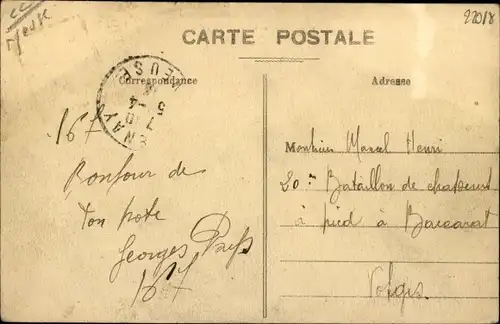 CC
Meuse
22018
CARTE POSTALE
Correspondance
Adresse
MEUSE
5-4
7 10
167
Bonjour de
ton pote
Georges
167
Monsieur Marcel Henri
20e Bataillon de chasseurs
à pied à Baccarat
Vosges